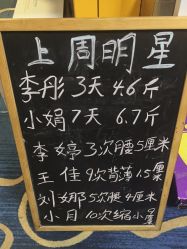 上周明星
李彤3天4.6斤
小娟7天6.7斤
李婷3次腰5厘米
王佳9次背薄1.5厘米
刘娜5次腰4厘米
小月10次缩小量